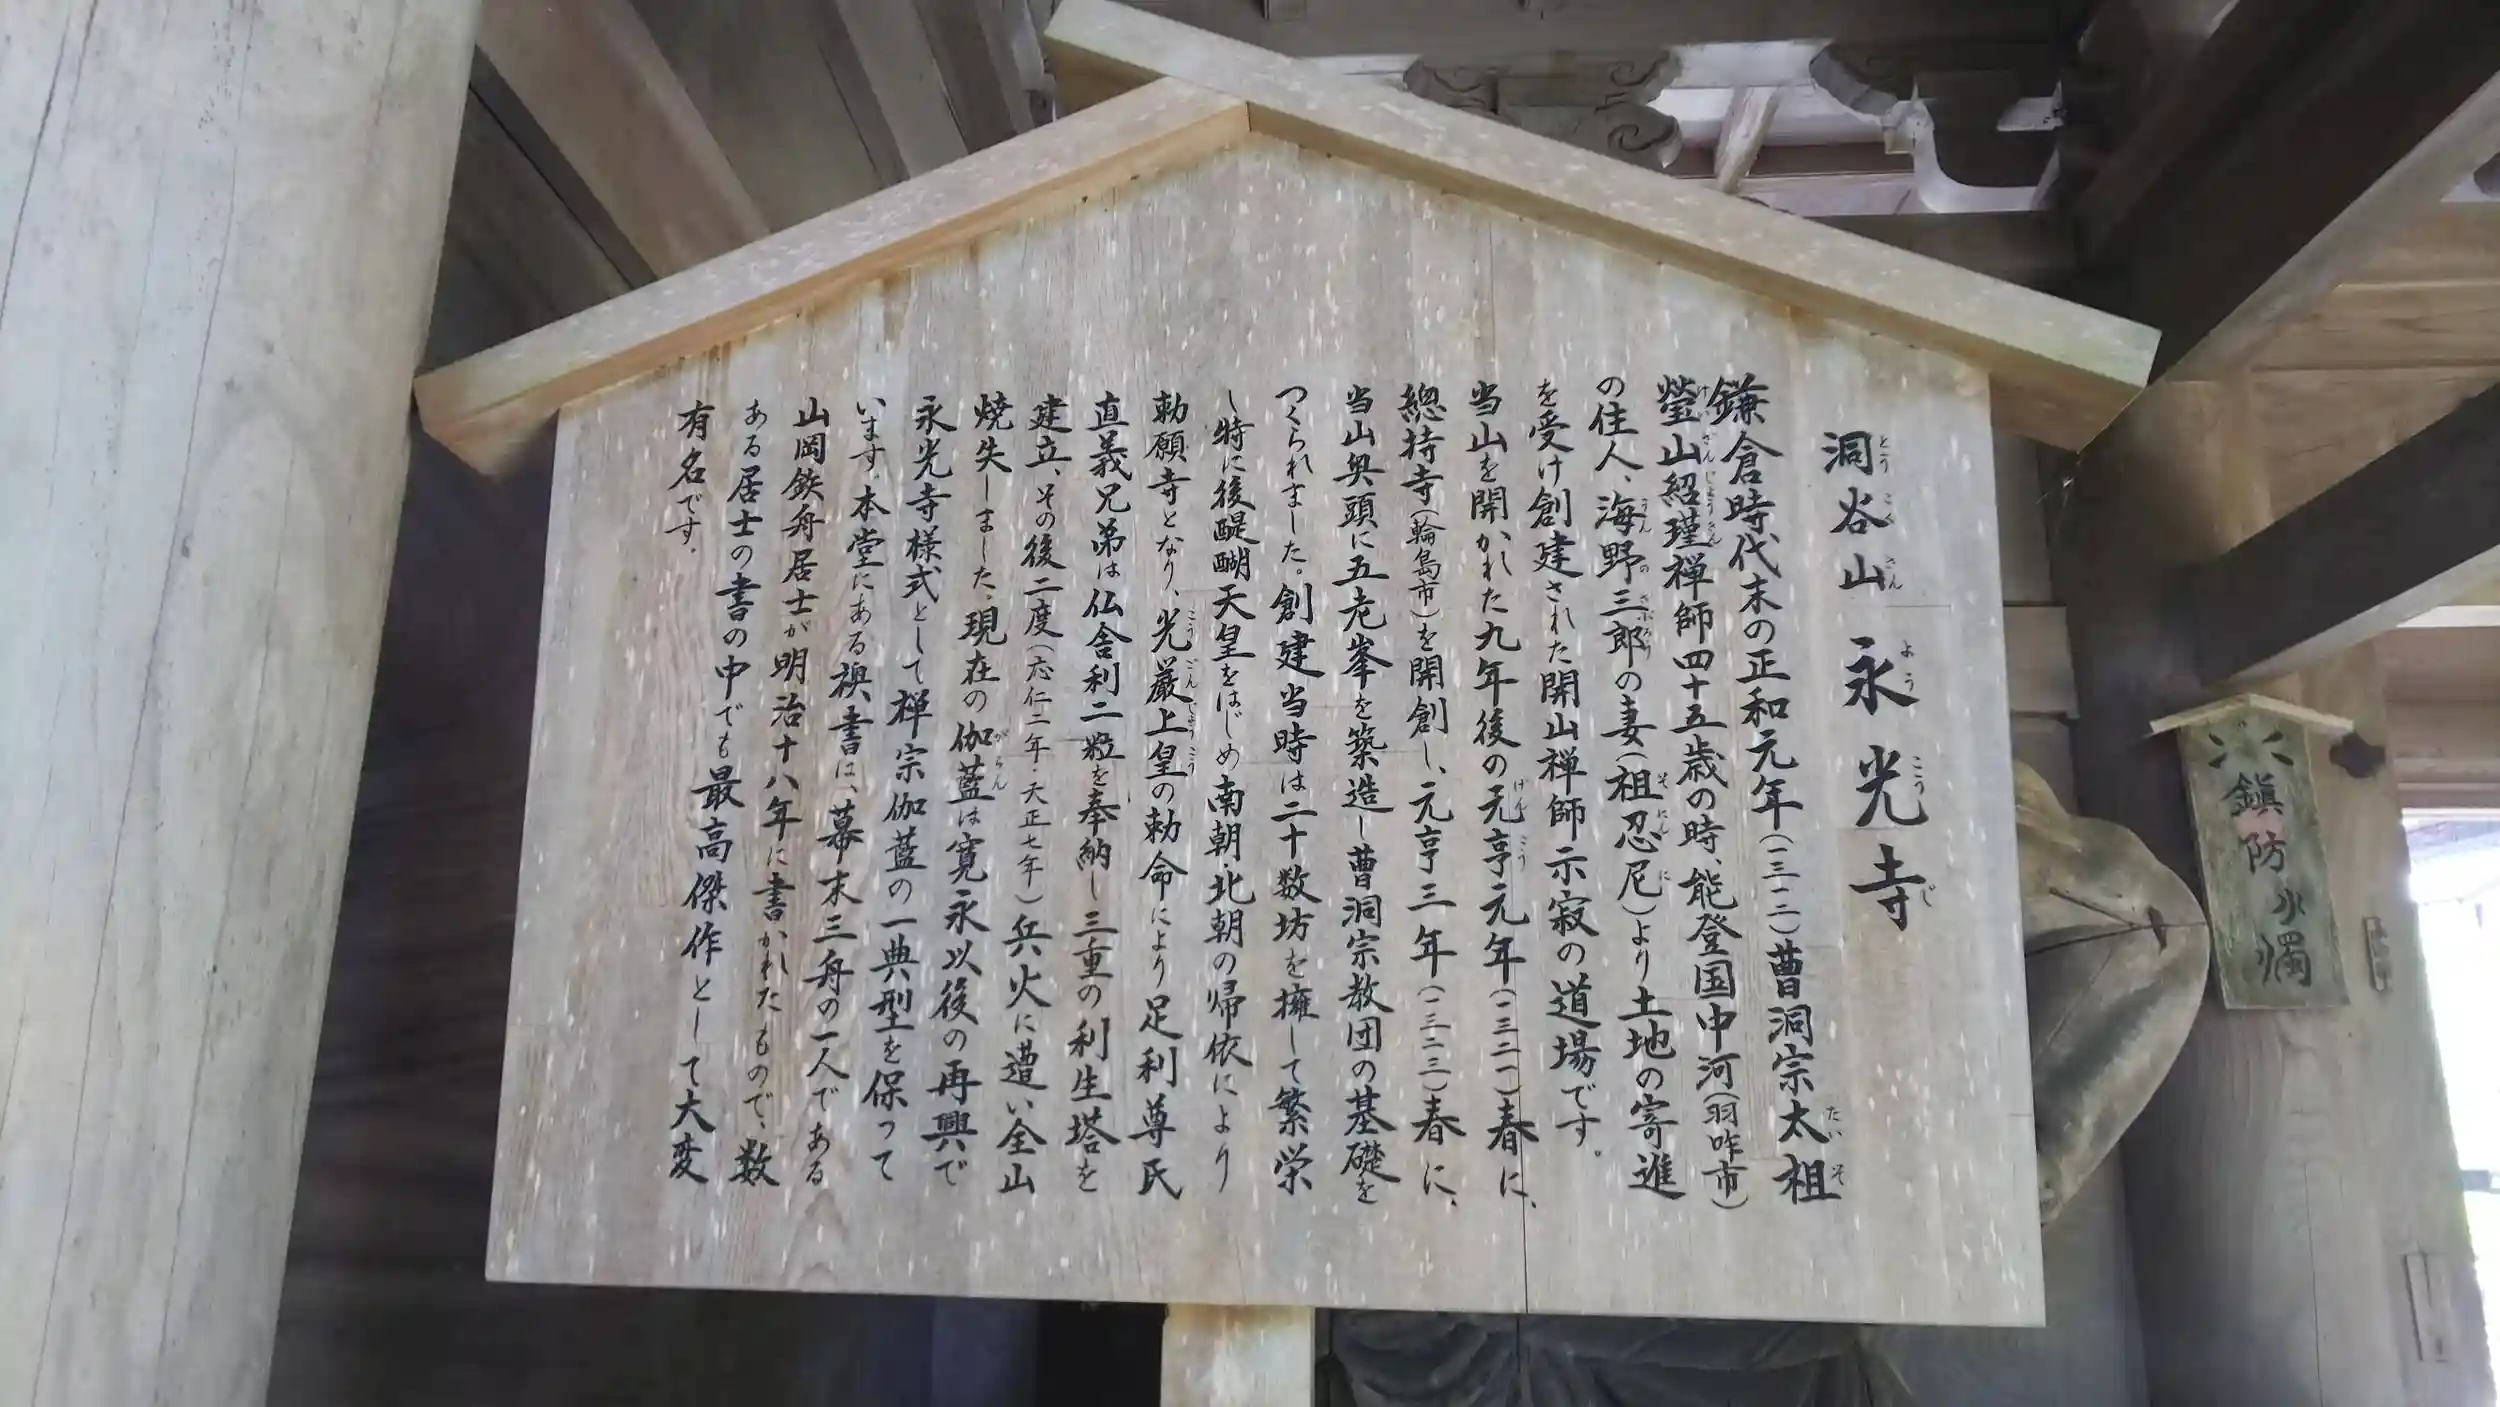 洞谷山 永光寺
鎌倉時代末の正和元年(一三一二)曹洞宗太祖
瑩山紹瑾禅師四十五歳の時、能登国中河(羽咋市)
の住人、海野三郎の妻(祖忍尼)より土地の寄進
を受け創建された開山禅師示寂の道場です。
当山を開かれた九年後の元亨元年(一三二一)春に、
總持寺(輪島市)を開創し、元亨三年(一三二三)春に、
当山奥頭に五老峯を築造し曹洞宗教団の基礎を
つくられました。創建当時は二十数坊を擁して繁栄
し特に後醍醐天皇をはじめ南朝・北朝の帰依により
勅願寺となり、光厳上皇の勅命により足利尊氏
直義兄弟は仏舎利二粒を奉納し三重の利生塔を
建立、その後二度(応仁二年・天正七年)兵火に遭い全山
焼失しました。現在の伽藍は寛永以後の再興で
永光寺様式として禅宗伽藍の一典型を保って
います。本堂にある襖書は、幕末三舟の一人である
山岡鉄舟居士が明治十八年に書かれたもので、数
ある居士の書の中でも最高傑作として大変
有名です。
鎮防火燭